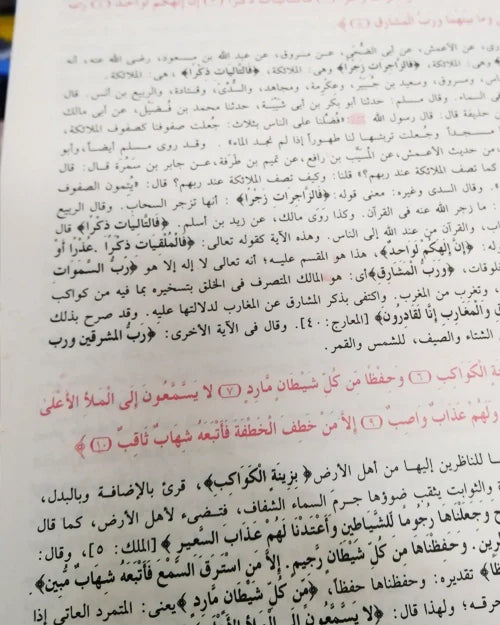 إِنَّ إِلَهَكُمْ لَوَاحِدٌ ﴿٤﴾ رَبُّ
وَمَا بَيْنَهُمَا وَرَبُّ الْمَشَارِقِ ﴿٥﴾
عن الأعمش، عن أبى الضُّحَى، عن مسروق، عن عبد الله بن مسعود، رضى الله عنه، أنه
﴿فَالزَّاجِرَاتِ زَجْرًا﴾ وهى: الملائكة، ﴿فَالتَّالِيَاتِ ذِكْرًا﴾ ، هى: الملائكة.
ومسروق، وسعيد بن جُبَيْر، وعكرمة، ومجاهد، والسُّدِّىّ، وقتادة، والربيع بن أنس. قال
فى السماء. وقال مسلم: حدثنا أبو بكر بن أبى شيبة، حدثنا محمد بن فُضَيْل، عن أبى مالك
حذيفة قال: قال رسول الله ﷺ: «فُضِّلنا على الناس بثلاث: جُعلت صفوفنا كصفوف الملائكة،
مسجداً وجُعلت تربتها لنا طهوراً إذا لم نجد الماء» . وقد روى مسلم أيضاً، وأبو
من حديث الأعمش، عن المُسَيَّب بن رافع، عن تميم بن طَرَفة، عن جابر بن سَمُرَة قال: قال
كما تصف الملائكة عند ربهم؟» قلنا: وكيف تصف الملائكة عند ربهم؟ قال: «يُتمون الصفوف
. وقال السدى وغيره: معنى قوله: ﴿فَالزَّاجِرَاتِ زَجْرًا﴾ : أنها تزجر السحاب. وقال الربيع
: ما زجر الله عنه فى القرآن. وكذا روى مالك، عن زيد بن أسلم. ﴿فَالتَّالِيَاتِ ذِكْرًا﴾ قال
والقرآن من عند الله إلى الناس. وهذه الآية كقوله تعالى: ﴿فَالْمُلْقِيَاتِ ذِكْرًا . عُذْرًا أَوْ
: ﴿إِنَّ إِلَهَكُمْ لَوَاحِدٌ﴾، هذا هو المقسم عليه؛ أنه تعالى لا إله إلا هو ﴿رَبُّ السَّمَوَاتِ
، ﴿وَرَبُّ الْمَشَارِقِ﴾ أى: هو المالك المتصرف فى الخلق بتسخيره بما فيه من كواكب
، وتغرب من المغرب. واكتفى بذكر المشارق عن المغارب لدلالتها عليه. وقد صرح بذلك
وَالْمَغَارِبِ إِنَّا لَقَادِرُونَ﴾ [المعارج: ٤٠]. وقال فى الآية الأخرى: ﴿رَبُّ الْمَشْرِقَيْنِ وَرَبُّ
الشتاء والصيف، للشمس والقمر.
الْكَوَاكِبِ ﴿٦﴾ وَحِفْظًا مِّن كُلِّ شَيْطَانٍ مَّارِدٍ ﴿٧﴾ لا يَسَّمَّعُونَ إِلَى الْمَلأِ الأَعْلَىٰ
وَلَهُمْ عَذَابٌ وَاصِبٌ ﴿٩﴾ إِلاَّ مَنْ خَطِفَ الْخَطْفَةَ فَأَتْبَعَهُ شِهَابٌ ثَاقِبٌ ﴿١٠﴾ ﴾
للناظرين إليها من أهل الأرض ﴿ بِزِينَةٍ الْكَوَاكِبِ﴾، قرئ بالإضافة وبالبدل،
والثوابت يثقب ضوؤها جرم السماء الشفاف، فتضىء لأهل الأرض، كما قال
وَجَعَلْنَاهَا رُجُومًا لِّلشَّيَاطِينِ وَأَعْتَدْنَا لَهُمْ عَذَابَ السَّعِيرِ ﴾ [الملك: ٥]، وقال:
. وَحَفِظْنَاهَا مِن كُلِّ شَيْطَانٍ رَّجِيمٍ. إِلاَّ مَنِ اسْتَرَقَ السَّمْعَ فَأَتْبَعَهُ شِهَابٌ مُّبِينٌ﴾
تقديره: وحفظناها حفظاً، ﴿مِّن كُلِّ شَيْطَانٍ مَّارِدٍ ﴾ يعنى: المتمرد العاتى إذا
؛ ولهذا قال: ﴿لا يَسَّمَّعُونَ إِلَى الْمَلأِ